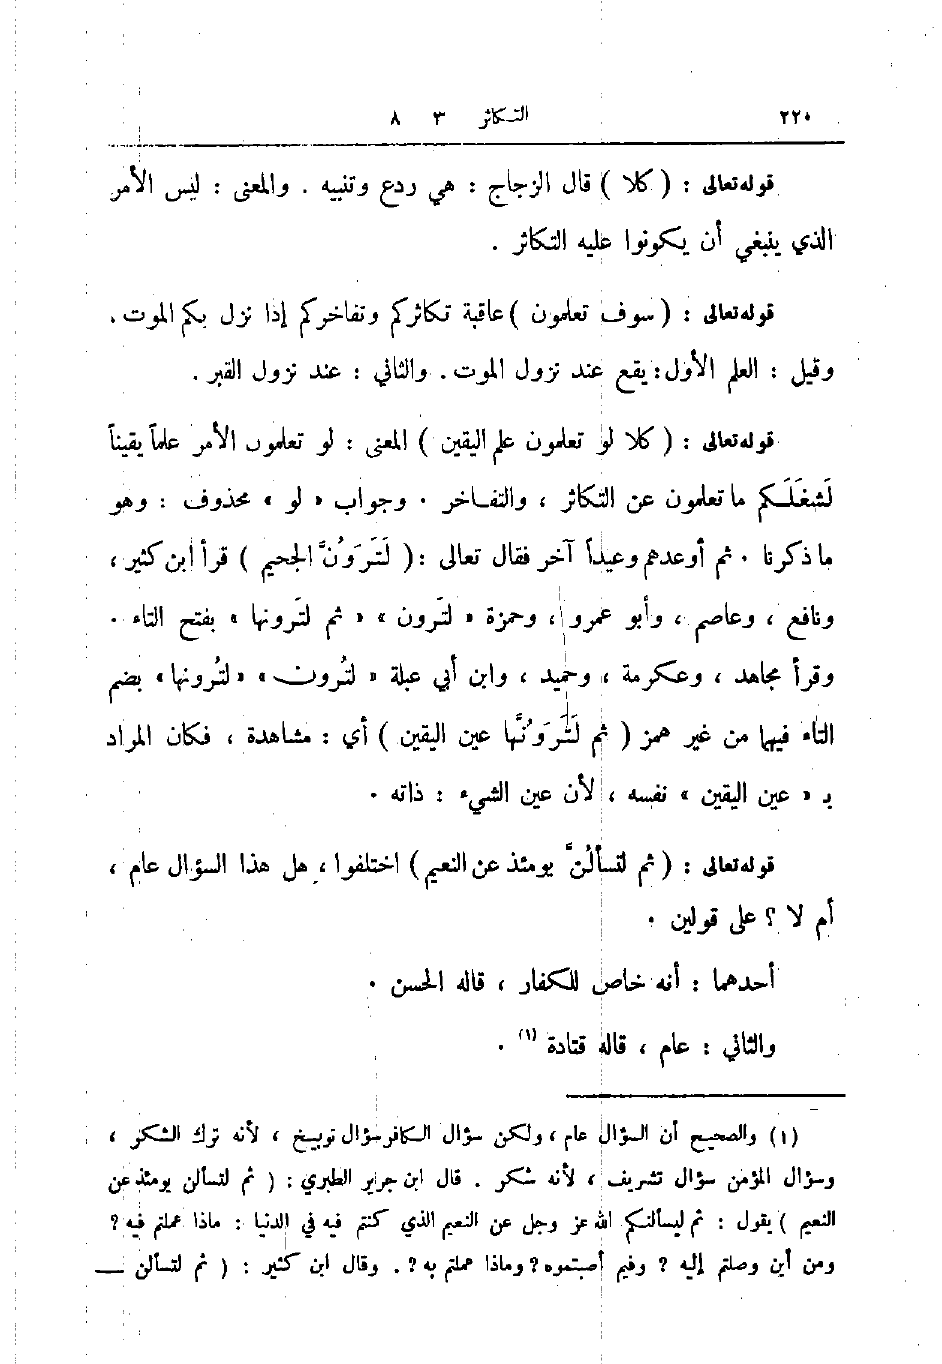 ٢٢٠ التكاثر ٣ ٨
قوله تعالى : ( كلا ) قال الزجاج : هي ردع وتنبيه . والمعنى : ليس الأمر
الذي ينبغي أن يكونوا عليه التكاثر .
قوله تعالى : ( سوف تعلمون ) عاقبة تكاثركم وتفاخركم إذا نزل بكم الموت .
وقيل : العلم الأول : يقع عند نزول الموت . والثاني : عند نزول القبر .
قوله تعالى : ( كلا لو تعلمون علم اليقين ) المعنى : لو تعلمون الأمر علماً يقيناً
لَشَغَلَكم ما تعلمون عن التكاثر ، والتفاخر . وجواب « لو » محذوف : وهو
ما ذكرنا . ثم أوعدهم وعيداً آخر فقال تعالى : ( لَتَرَوُنَّ الجحيم ) قرأ ابن كثير ،
ونافع ، وعاصم ، وأبو عمرو ، وحمزة « لتَرون » « ثم لتَرونها » بفتح التاء .
وقرأ مجاهد ، وعكرمة ، وحميد ، وابن أبي عبلة « لتُرون » « لتُرونها » بضم
التاء فيهما من غير همز ( ثم لَتَرَوُنَّها عين اليقين ) أي : مشاهدة ، فكان المراد
بـ « عين اليقين » نفسه ، لأن عين الشيء : ذاته .
قوله تعالى : ( ثم لتسألُنَّ يومئذ عن النعيم ) اختلفوا ، هل هذا السؤال عام ،
أم لا ؟ على قولين .
أحدهما : أنه خاص للكفار ، قاله الحسن .
والثاني : عام ، قاله قتادة (١) .
(١) والصحيح أن السؤال عام ، ولكن سؤال الكافر سؤال توبيخ ، لأنه ترك الشكر ،
وسؤال المؤمن سؤال تشريف ، لأنه شكر . قال ابن جرير الطبري : ( ثم لتسألن يومئذ عن
النعيم ) يقول : ثم ليسألنكم الله عز وجل عن النعيم الذي كنتم فيه في الدنيا : ماذا عملتم فيه ؟
ومن أين وصلتم إليه ؟ وفيم أصبتموه ؟ وماذا عملتم به ؟ . وقال ابن كثير : ( ثم لتسألن ــ